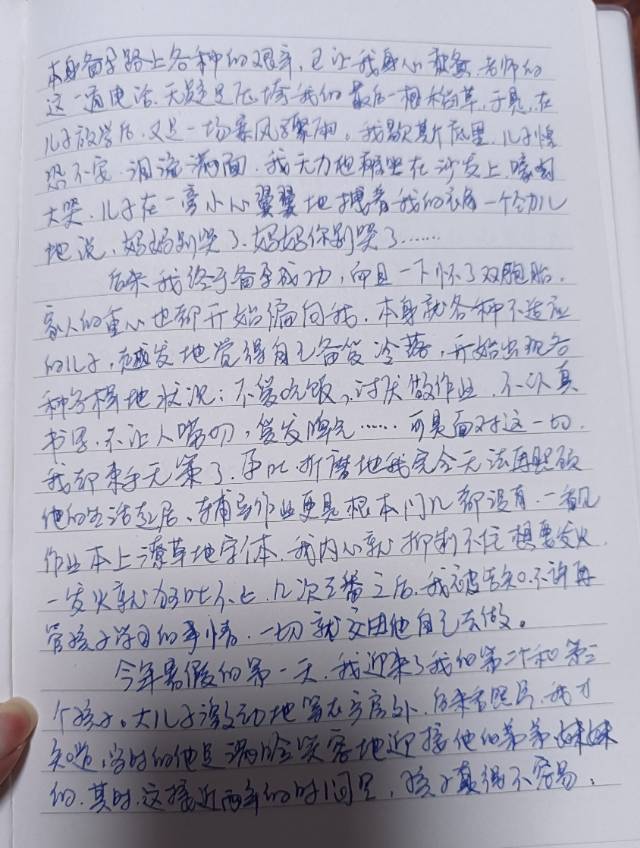 本身备孕路上各种的艰辛,已让我身心疲惫,老师的
这一通电话,无疑是压垮我的最后一根稻草,于是,在
儿子放学后,又是一场暴风骤雨。我歇斯底里,儿子惶
恐不安,泪流满面,我无力地瘫坐在沙发上嚎啕
大哭,儿子在一旁小心翼翼地拽着我的衣角一个劲儿
地说,妈妈别哭了,妈妈你别哭了……
后来我终于备孕成功,而且一下怀了双胞胎,
家人的重心也都开始偏向我,本身就各种不适应
的儿子,越发地觉得自己备受冷落,开始出现各
种各样地状况:不爱吃饭、讨厌做作业、不认真
书写、不让人唠叨,爱发脾气……可是面对这一切,
我却束手无策了,孕吐折磨地我完全无法再照顾
他的生活起居,辅导作业更是根本门儿都没有,一看见
作业本上潦草地字体,我内心就抑制不住想要发火,
一发火就呕吐不止,几次三番之后,我被告知不许再
管孩子学习的事情,一切就交由他自己去做。
今年暑假的第一天,我迎来了我的第二个和第三
个孩子。大儿子激动地等在产房外,后来看照片,我才
知道,当时的他是满脸笑容地迎接他的弟弟妹妹
的,其时,这接近两年的时间里,孩子真得不容易,